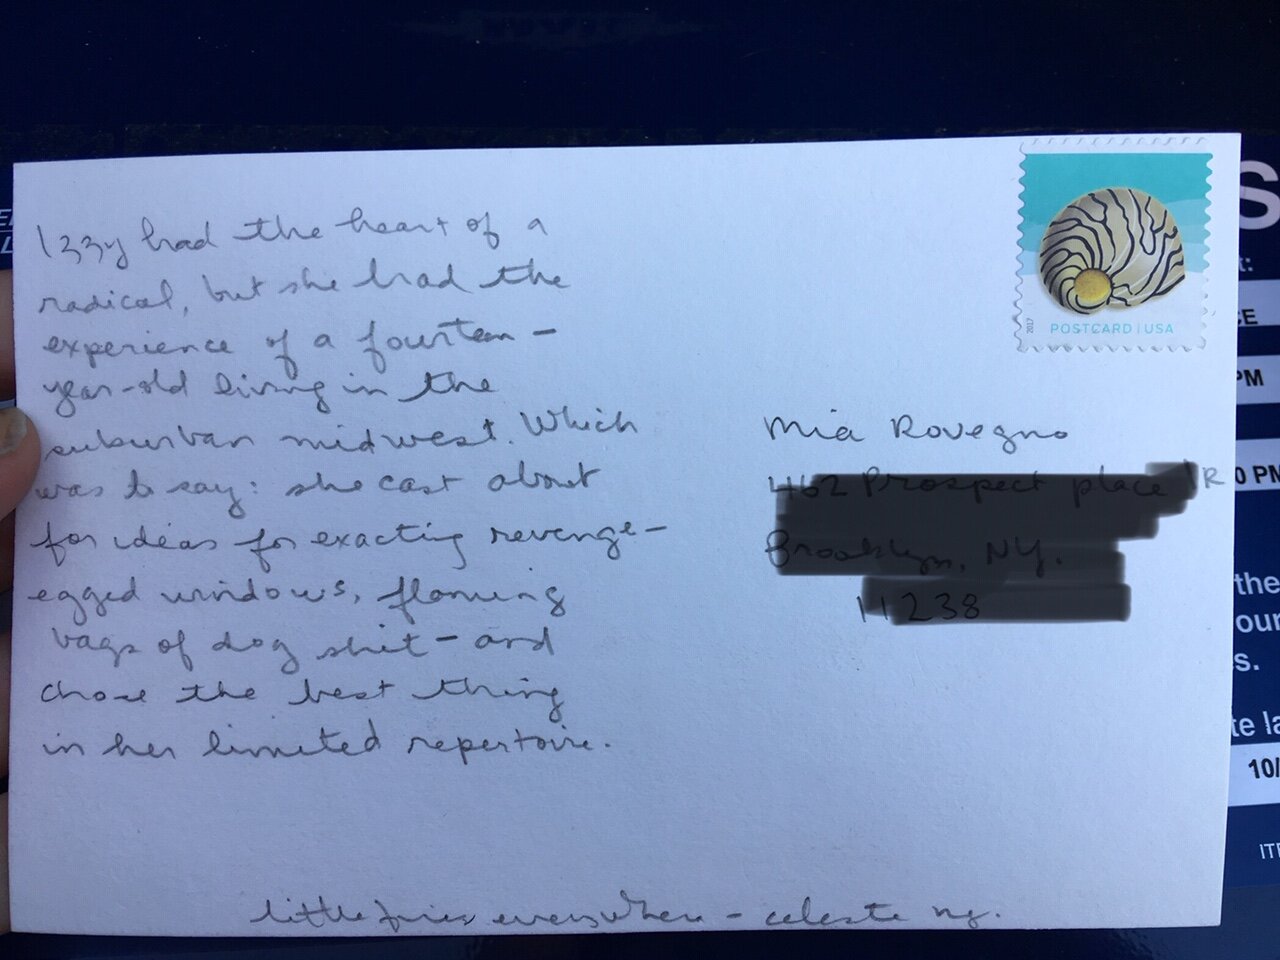 Izzy had the heart of a
radical, but she had the
experience of a fourteen-
year-old living in the
suburban midwest. Which
was to say: she cast about
for ideas for exacting revenge-
egged windows, flaming
bags of dog shit - and
chose the best thing
in her limited repertoire.
little fires everywhere - celeste ng.
2017
POSTCARD | USA
Mia Rovegno
S
t:
PM
0 PM
the
our
s.
te la
10/